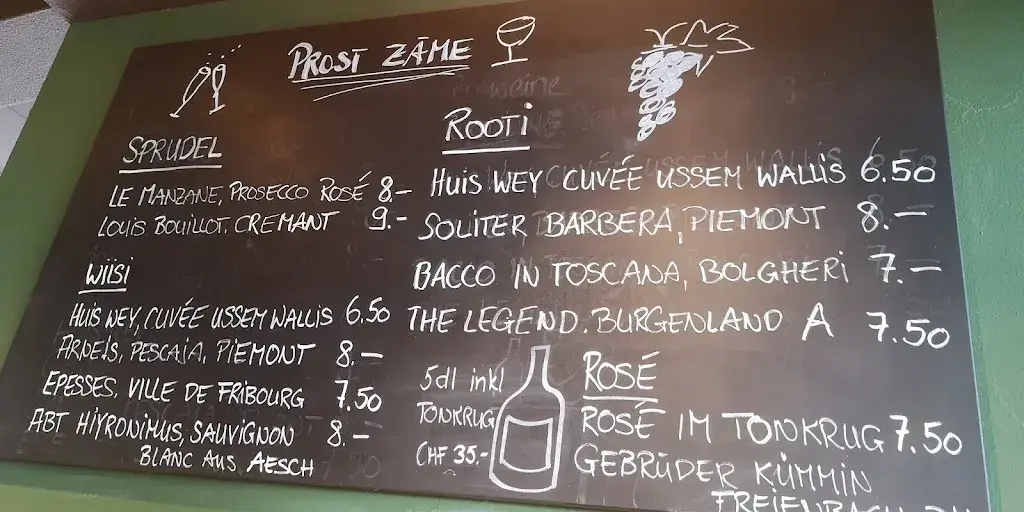 PROST ZÄME
SPRUDEL
LE MANZANE, PROSECCO ROSÉ 8.–
LOUIS BOUILLOT. CREMANT 9.-
WIISI
HUIS WEY, CUVÉE USSEM WALLIS 6.50
ARNEIS, PESCAIA, PIEMONT 8.–
EPESSES, VILLE DE FRIBOURG 7.50
ABT HIYRONIMUS, SAUVIGNON 8.–
BLANC AUS AESCH
ROOTI
HUIS WEY CUVÉE USSEM WALLIS 6.50
SOLITER BARBERA, PIEMONT 8.–
BACCO IN TOSCANA, BOLGHERI 7.–
THE LEGEND. BURGENLAND A 7.50
5dl inkl
TONKRUG
CHF 35.-
ROSÉ
ROSÉ IM TONKRUG 7.50
GEBRÜDER KÜMMIN
FREIENBACH